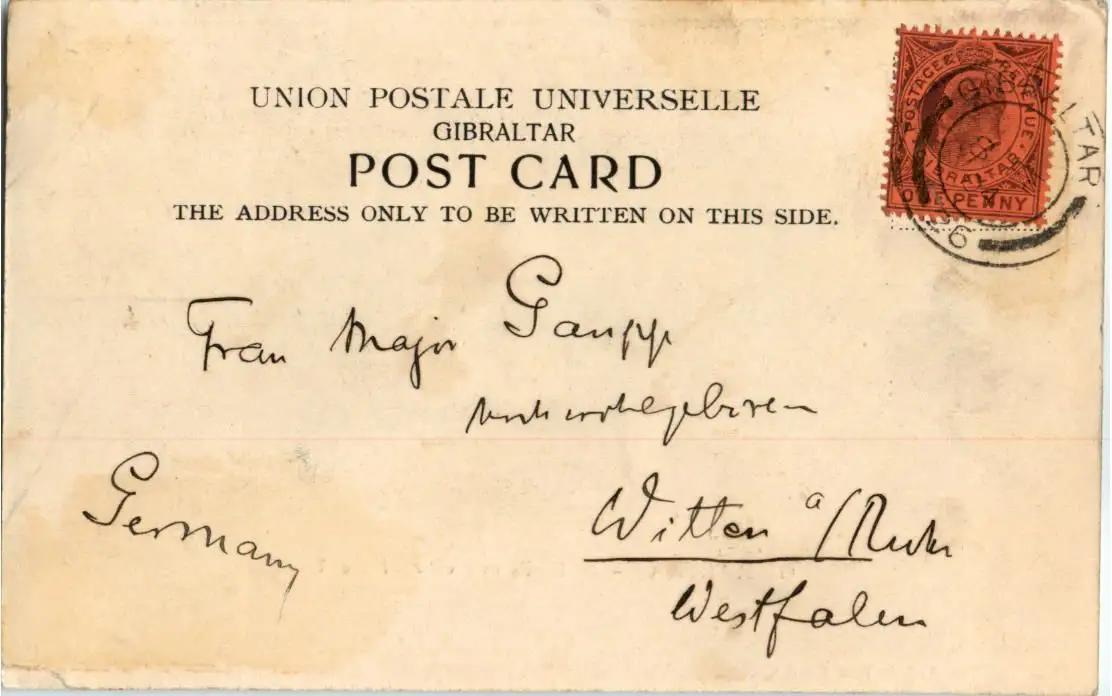 UNION POSTALE UNIVERSELLE
GIBRALTAR
POST CARD
THE ADDRESS ONLY TO BE WRITTEN ON THIS SIDE.
POSTAGE & REVENUE
GIBRALTAR
ONE PENNY
GIBRALTAR
Frau Major Gaupp
Hochwohlgeboren
Germany
Witten a/Ruhr
Westfalen